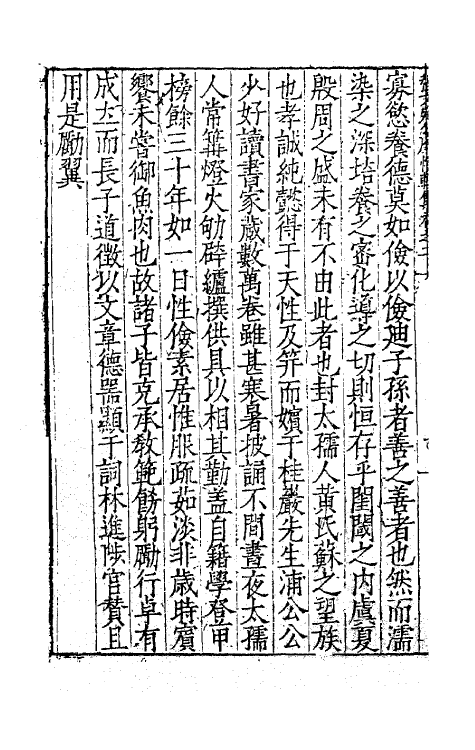 寡慾養德莫如儉以儉廸子孫者善之善者也然而濡
染之深培養之密化導之切則恒存乎閨閫之内虞夏
殷周之盛未有不由此者也封太孺人黃氏蘇之望族
也孝誠純懿得于天性及筓而嬪于桂巖先生浦公公
少好讀書家蔵數萬卷雖甚寒暑披誦不間晝夜太孺
人常篝燈火劬辟纑撰供具以相其勤盖自籍學登甲
榜餘三十年如一日性儉素居惟服疏茹淡非歲時賓
饗未嘗御魚肉也故諸子皆克承教範飭躬勵行卓有
成立而長子道徵以文章德噐顯于詞林進陟官賛且
用是勵翼